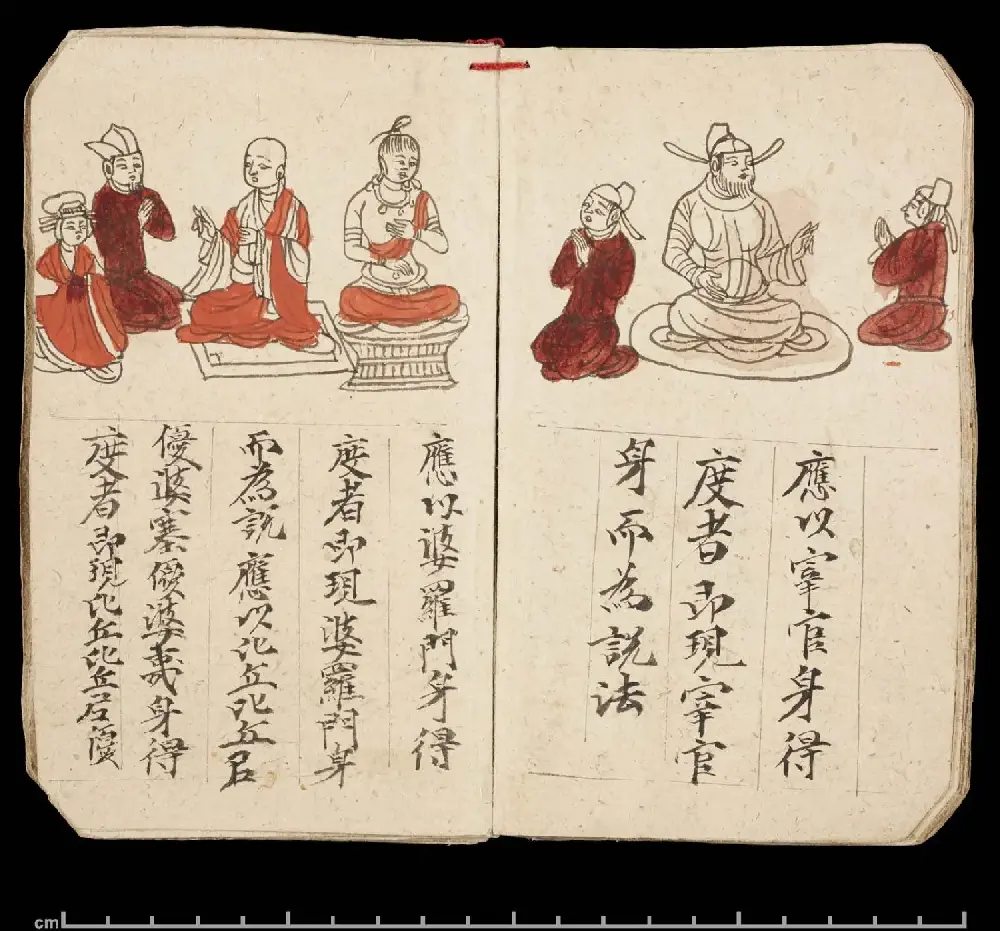 應以宰官身得
度者即現宰官
身而為說法
應以婆羅門身得
度者即現婆羅門身
而為說應以比丘比丘尼
優婆塞優婆夷身得
度者即現比丘比丘尼優
cm